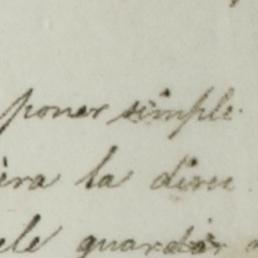 poner simple
era la direc
ele guardar